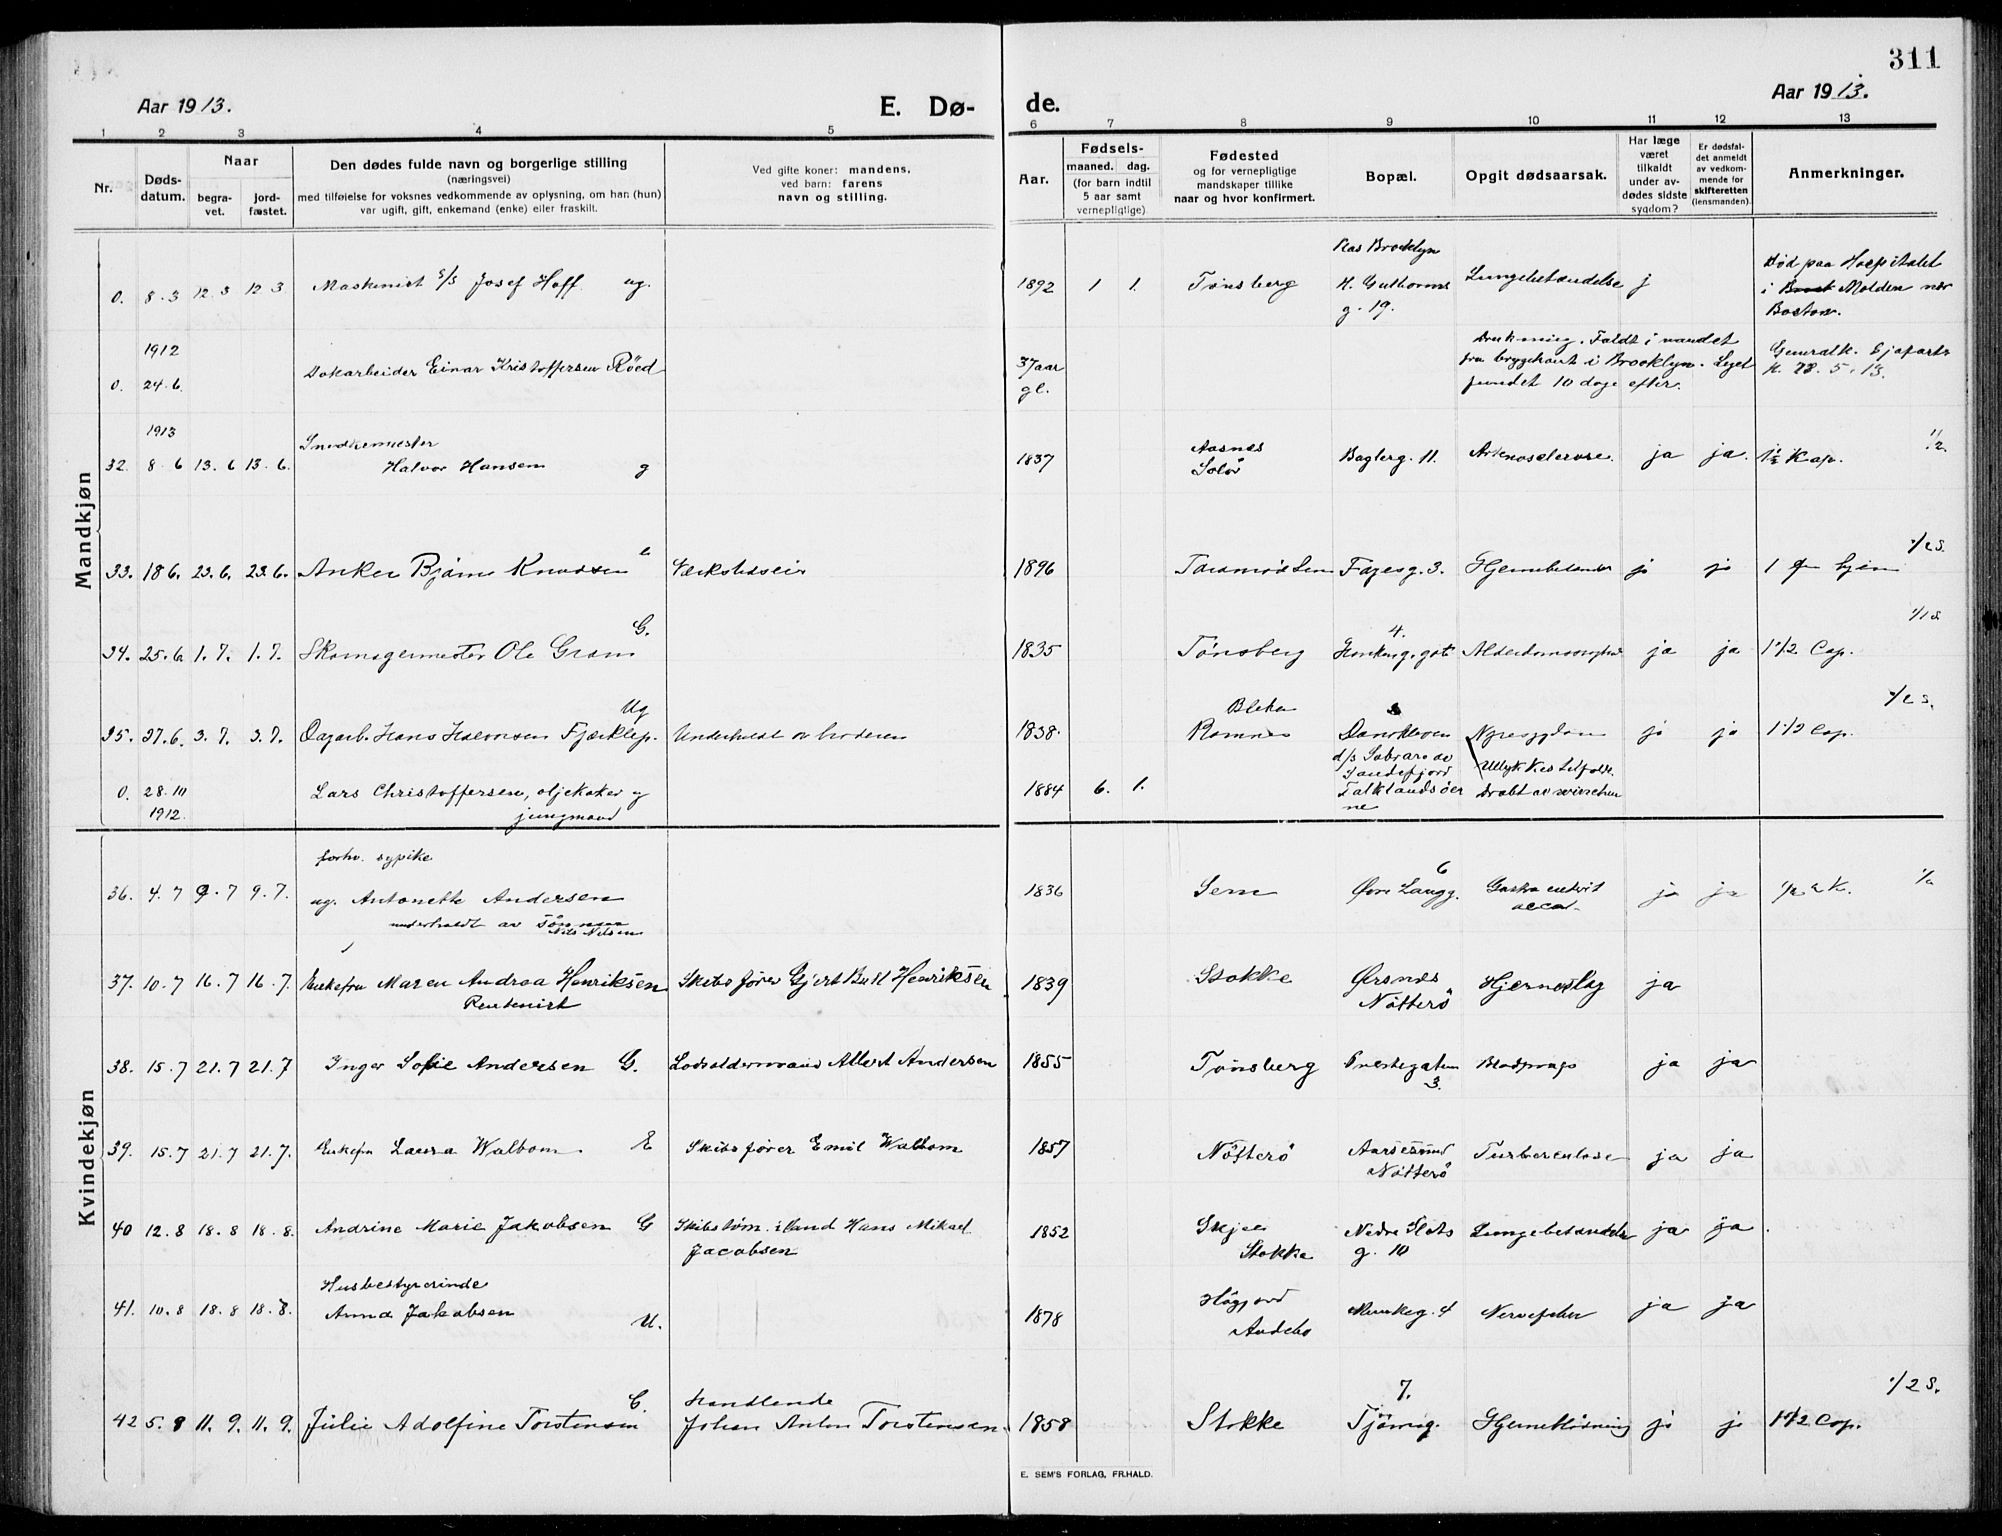 311
Aar 1913.
E. Dø-
de.
Aar 1913.
1 2 3 4 5
6 7 8 9 10 11 12 13
Nr.
Døds-
datum.
Naar
begra-
vet.
jord-
fæstet.
Den dødes fulde navn og borgerlige stilling
(næringsvei)
med tilføielse for voksnes vedkommende av oplysning, om han (hun)
var ugift, gift, enkemand (enke) eller fraskilt.
Ved gifte koner: mandens,
ved barn: farens
navn og stilling.
Aar.
Fødsels-
maaned. dag.
(for barn indtil
5 aar samt
vernepligtige)
Fødested
og for vernepligtige
mandskaper tillike
naar og hvor konfirmert.
Bopæl.
Opgit dødsaarsak.
Har læge
været
tilkaldt
under av-
dødes sidste
sygdom?
Er dødsfal-
det anmeldt
av vedkom-
mende for
skifteretten
(lensmanden).
Anmerkninger.
Mandkjøn
0. 8.3 12.3 12.3 Maskinist s/s Josef Hoff ug. 1892 1 1. Tønsberg
Brooklyn
H. Guthorms
g. 19.
Lungebetændelse j
Død paa Hospitalet
i Molden nær
Boston.
1912
0. 24.6 Dokarbeider Einar Kristoffersen Röed
37 aar
gl.
Drukning. Faldt i vandet
fra bryggekant i Brooklyn. Liget
fundet 10 dage efter.
Generalk.
5. 13.
1913
32. 8.6 13.6 13.6. Snedkermester
Halvor Hansen g 1837
Aasnes
Solör
Baglerg. 11. ja ja. 1½ Kap. 1/2
33. 18.6. 23.6. 23.6. Anker Bjørn Knudsen 1896 Fayesg. 3. ja ja 1
34. 25.6 1.7. 1.7. Skomagermester Ole Gram G. 1835 Tønsberg 4. ja ja 1½ Cap.
35. 27.6. 3.7. 3.7. Dagarb. Hans Halvorsen Fjærklep. Ug Underholdt av broderen 1838.
Ramnes Nyresygdom ja ja 1½ Cap.
0. 28.10
1912.
Lars Christoffersen, oljekoker og
jungmand
1884 6. 1.
Sandefjord
Falklandsöer
ne
Dræbt av
Kvindekjøn
36. 4.7 9.7 9.7. forhv. sypike
ug. Antonette Andersen
underholdt av
Nils Nilsen
1836 Sem
6
Øvre Langg. ja ja
37. 10.7 16.7 16.7. Enkefru Maren Andrea Henriksen
Rentenist
Skibsfører Gjert Bull Henriksen 1839 Stokke
Ørsnes
Nötterö
Hjerneslag ja
38. 15.7 21.7 21.7 Inger Sofie Andersen G. Lodsoldermand Albert Andersen 1855 Tønsberg
Præstegaten
3.
Blodprop ja ja
39. 15.7 21.7 21.7. Enkefru Laura Walbom. E Skibsfører Emil Walbom 1857 Nötterö
Aarøesund
Nötterö
Tuberculose ja ja
40 12.8 18.8 18.8. Andrine Marie Jakobsen G
Skibstøm. Hans Mikael
Jacobsen
1852
Skjee
Stokke
Nedre Slots
g. 10
Lungebetændelse ja ja
41. 10.8 18.8 18.8. Husbestyrerinde
Anna Jakobsen U. 1878
Andebo
Munkeg. 4 Nervefeber ja ja
42 5.8 11.9. 11.9. Julie Adolfine Torstensen
Handlende
Johan Anton Torstensen 1858 Stokke
7.
Tjömeg. Hjerneblödning ja ja 1½ Cap. 1/2 S.
E. SEM'S FORLAG, FR.HALD.